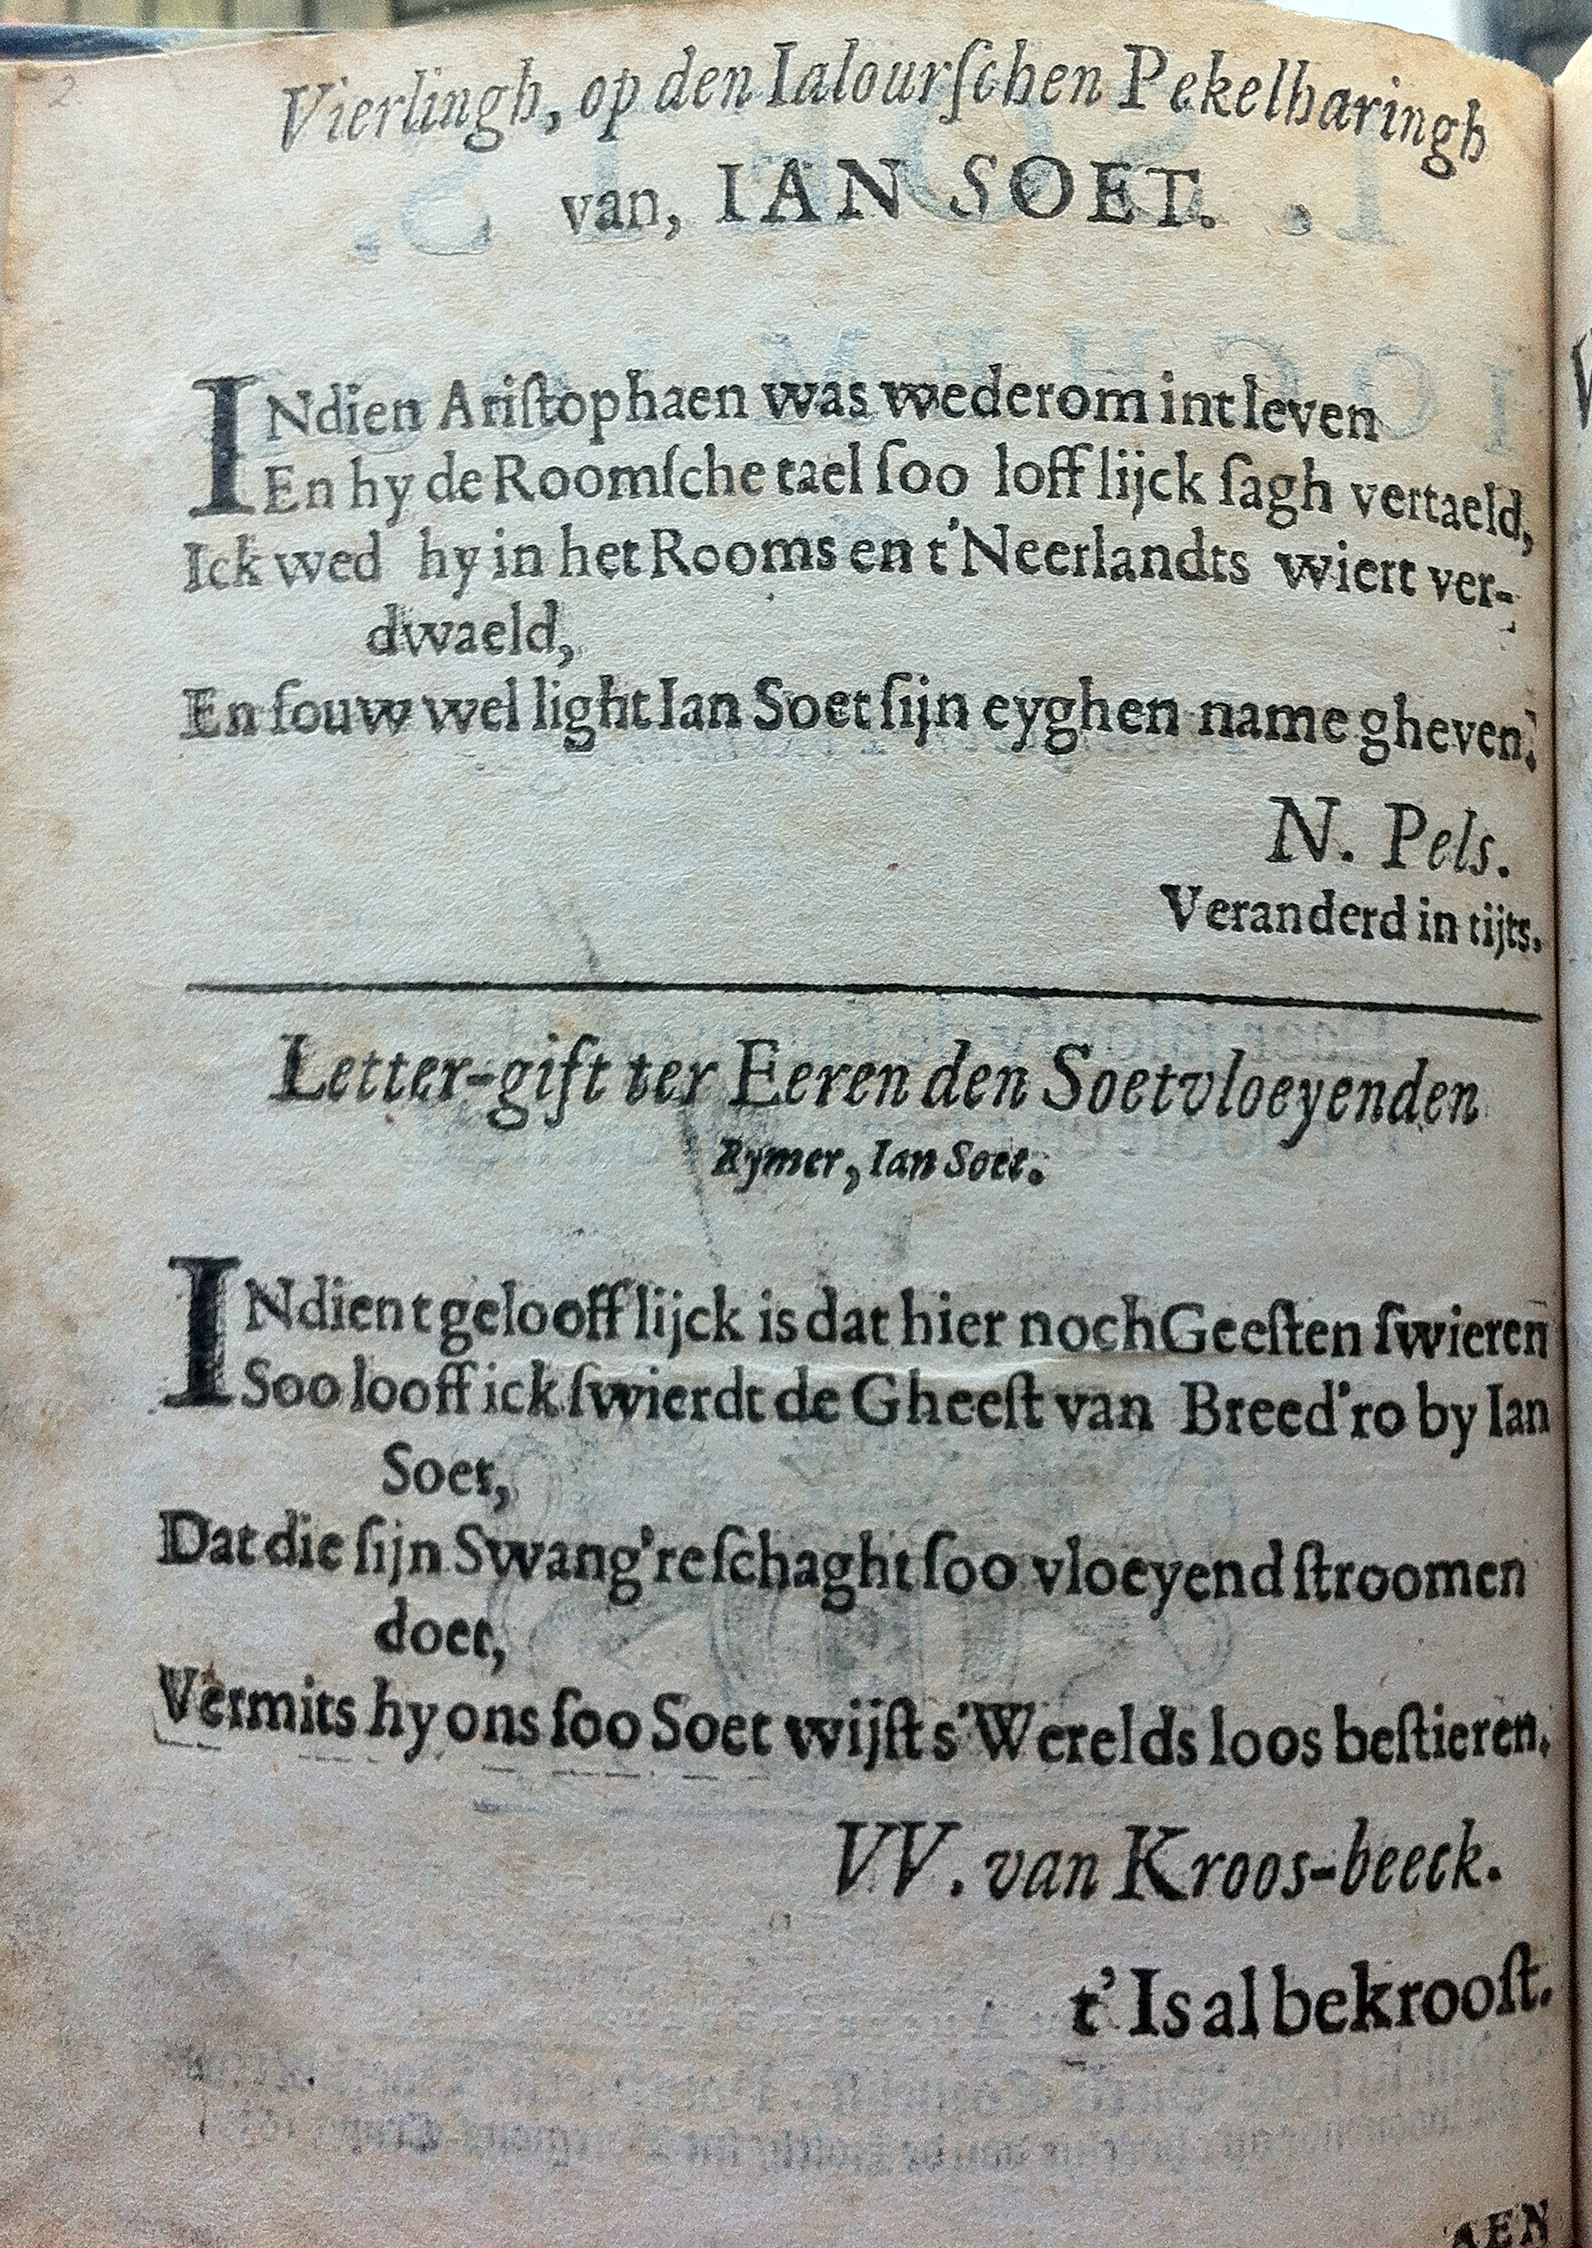 2.
Vierlingh, op den Ialourſchen Pekelharingh
van, IAN SOET.
INdien Ariſtophaen was wederom int leven
En hy de Roomſche tael ſoo lofflijck ſagh vertaeld,
Ick wed hy in het Rooms en t'Neerlandts wiert ver-
dwaeld,
En ſouw wel light Ian Soet ſijn eyghen name gheven.
N. Pels.
Veranderd in tijts.
Letter-gift ter Eeren den Soetvloeyenden
Rymer, Ian Soet.
INdien t gelooff lijck is dat hier noch Geeſten ſwieren
Soo looff ick ſwierdt de Gheeſt van Breed'ro by Ian
Soet,
Dat die ſijn Swang're ſchaght ſoo vloeyend ſtroomen
doet,
Vermits hy ons ſoo Soet wijſt s'Werelds loos beſtieren.
VV. van Kroos-beeck.
t'Is al bekrooſt.
AEN